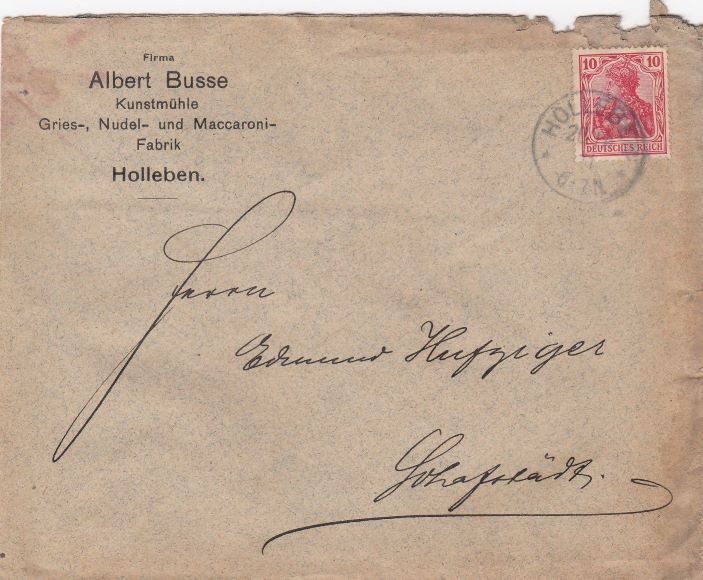 Firma
Albert Busse
Kunstmühle
Gries-, Nudel- und Maccaroni-
Fabrik
Holleben.
10 10
DEUTSCHES REICH
HOLLEBEN
6-7N
Herrn
Edmund Hufziger
Schafstädt.